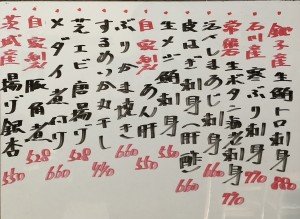 銚子産 生鮪トロ刺身 880
石川産 寒ぶり刺身 770
常磐産 生ボタン海老刺身 770
しまあじ刺身 660
皮はぎ刺身(肝酢) 660
生鮪刺身 550
自家製 あん肝 550
ぶりかま焼き 660
するめいか丸干し 440
芝エビ唐揚げ 528
メダイ煮付け 660
自家製 豚角煮 528
茨城産 揚げ銀杏 550